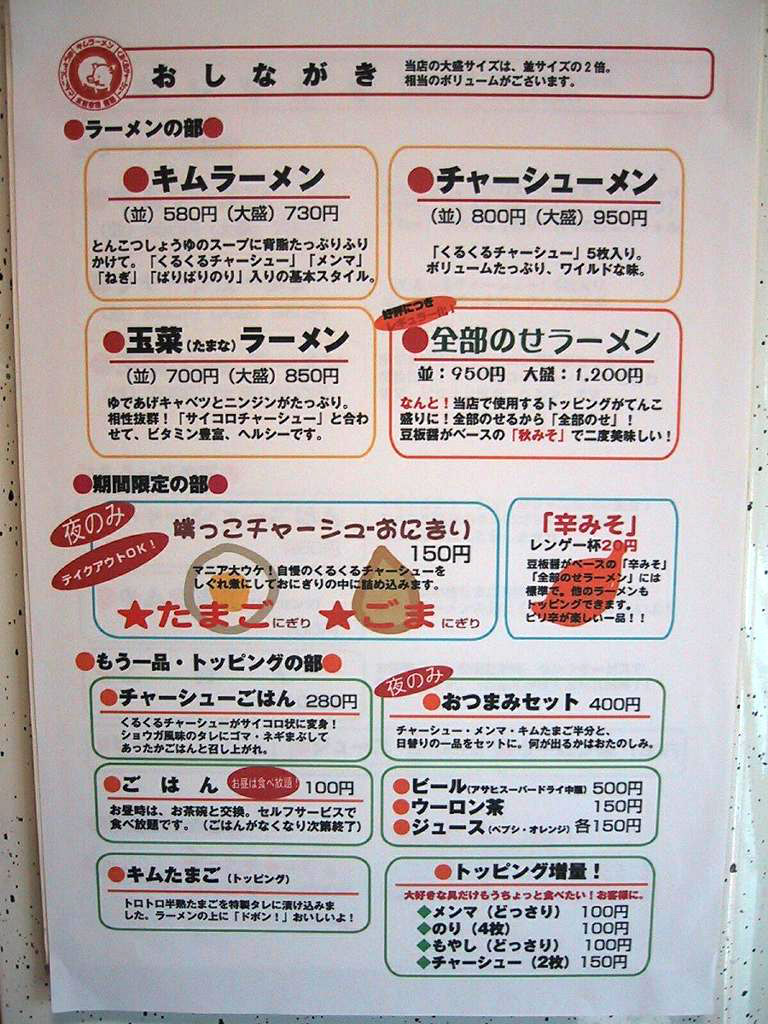 おしながき
当店の大盛サイズは、並サイズの2倍。
相当のボリュームがございます。
●ラーメンの部●
●キムラーメン
（並）580円（大盛）730円
とんこつしょうゆのスープに背脂たっぷりふり
かけて。「くるくるチャーシュー」「メンマ」
「ねぎ」「ぱりぱりのり」入りの基本スタイル。
●チャーシューメン
（並）800円（大盛）950円
「くるくるチャーシュー」5枚入り。
ボリュームたっぷり、ワイルドな味。
●玉菜（たまな）ラーメン
（並）700円（大盛）850円
ゆであげキャベツとニンジンがたっぷり。
相性抜群！「サイコロチャーシュー」と合わ
せて、ビタミン豊富、ヘルシーです。
好評につき
レギュラー化！
●全部のせラーメン
並：950円 大盛：1,200円
なんと！当店で使用するトッピングがてんこ
盛りに！全部のせるから「全部のせ」！
豆板醤がベースの「秋みそ」で二度美味しい！
●期間限定の部●
夜のみ
テイクアウトOK！
端っこチャーシューおにぎり
150円
マニア大ウケ！自慢のくるくるチャーシューを
しぐれ煮にしておにぎりの中に詰め込みます。
★たまごにぎり ★ごまにぎり
「辛みそ」
レンゲ一杯20円
豆板醤がベースの「辛みそ」
「全部のせラーメン」には
標準で。他のラーメンも
トッピングできます。
ピリ辛が楽しい一品！！
●もう一品・トッピングの部●
●チャーシューごはん 280円
くるくるチャーシューがサイコロ状に変身！
ショウガ風味のタレにゴマ・ネギまぶして
あったかごはんと召し上がれ。
夜のみ
●おつまみセット 400円
チャーシュー・メンマ・キムたまご半分と、
日替りの一品をセットに。何が出るかはおたのしみ。
●ごはん お昼は食べ放題！ 100円
お昼時は、お茶碗と交換。セルフサービスで
食べ放題です。（ごはんがなくなり次第終了）
●ビール（アサヒスーパードライ中瓶）500円
●ウーロン茶 150円
●ジュース（ペプシ・オレンジ）各150円
●キムたまご（トッピング）
トロトロ半熟たまごを特製タレに漬け込みま
した。ラーメンの上に「ドボン！」おいしいよ！
●トッピング増量！
大好きな具だけもうちょっと食べたい！お客様に。
◆メンマ（どっさり） 100円
◆のり（4枚） 100円
◆もやし（どっさり） 100円
◆チャーシュー（2枚）150円